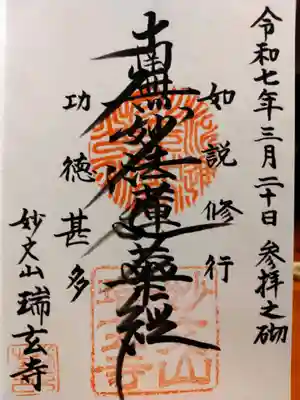 令和七年三月二十日 参拝之砌
如説修行
南無妙法蓮華経
功徳甚多
妙文山 瑞玄寺